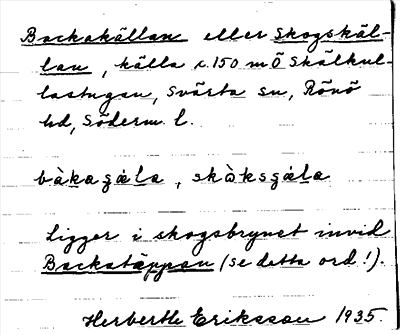 Backakällan eller Skogskäl-
lan, källa c. 150 m Ö Skälkul-
lastugan, Svärta sn, Rönö
hd, Söderm. l.
bàkaçɛla, skòksçɛla
Ligger i skogsbrynet invid
Backatäppan (se detta ord!).
Herberth Eriksson 1935.